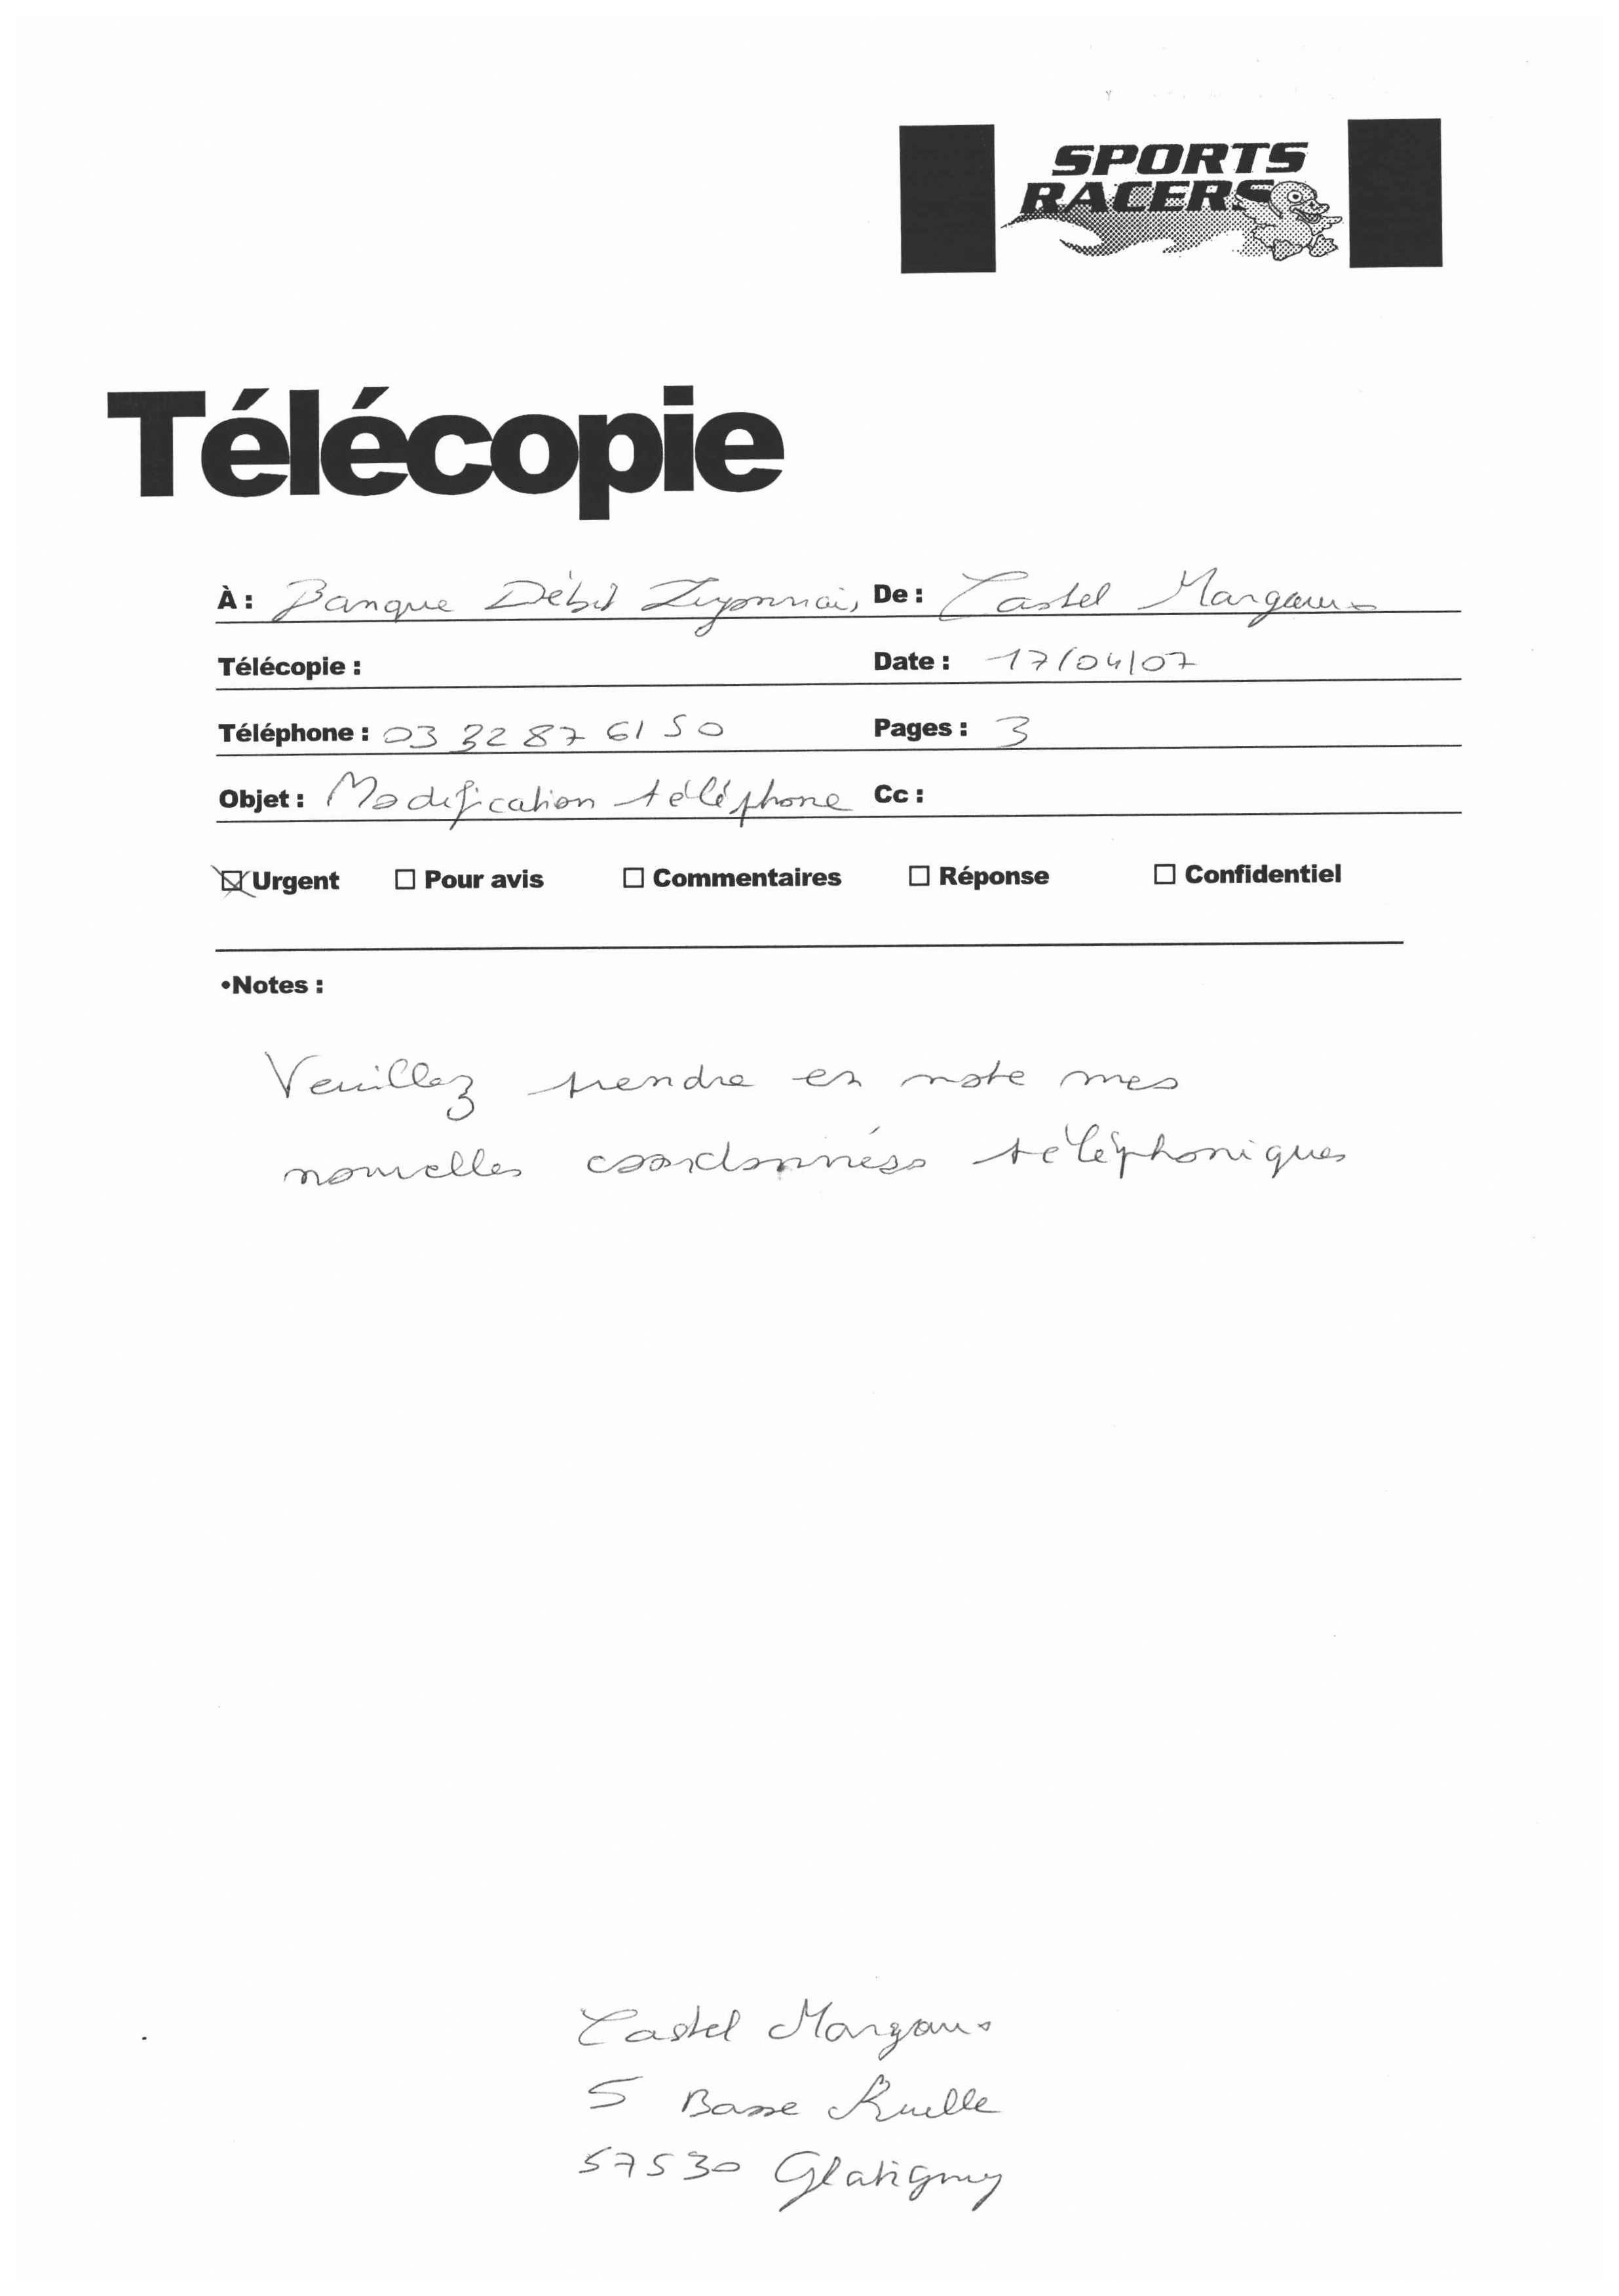 SPORTS
RACERS
Télécopie
À : Banque Débit Lyonnais De : Castel Margaux
Télécopie : Date : 17/04/07
Téléphone : 03 32 87 61 50 Pages : 3
Objet : Modification téléphone Cc :
Urgent Pour avis Commentaires Réponse Confidentiel
•Notes :
Veuillez prendre en note mes
nouvelles coordonnées téléphoniques
Castel Margaux
5 Basse Ruelle
57530 Glatigny